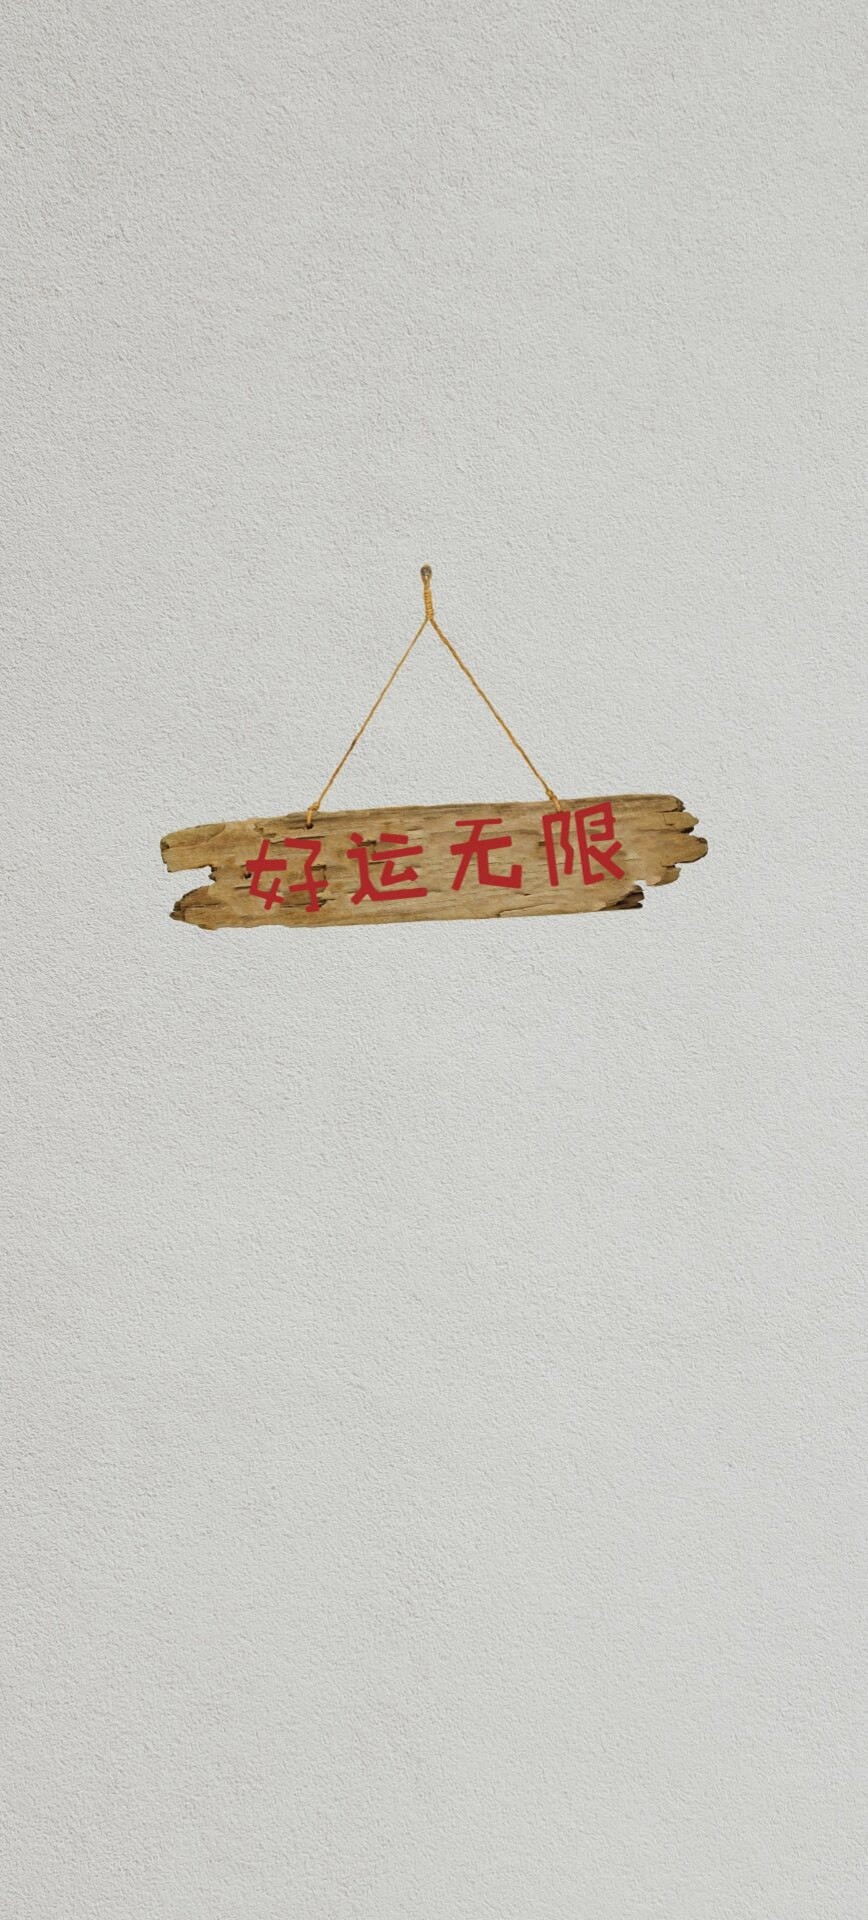 好运无限